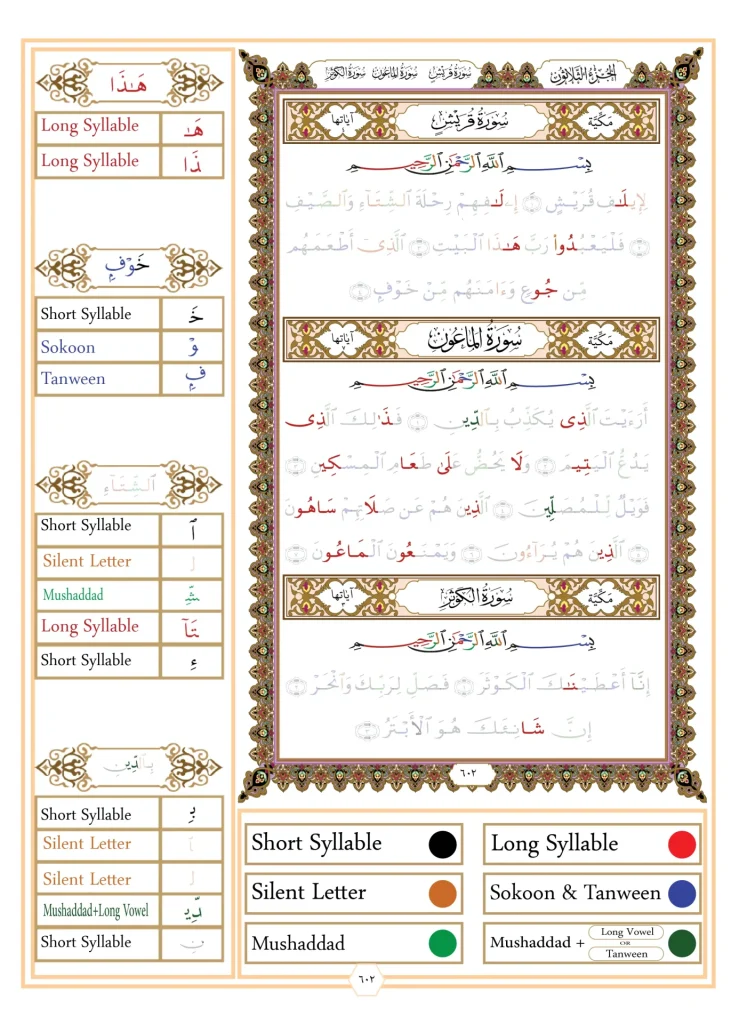 هَـٰذَا
Long Syllable هَـٰ
Long Syllable ذَا
خَوْفٍ
Short Syllable خَ
Sokoon وْ
Tanween فٍ
ٱلشِّتَآءِ
Short Syllable ٱ
Silent Letter ل
Mushaddad شِّ
Long Syllable تَآ
Short Syllable ءِ
بِٱلدِّينِ
Short Syllable بِ
Silent Letter ٱ
Silent Letter ل
Mushaddad+Long Vowel دِّي
Short Syllable نِ
الجزء الثلاثون سورة قريش سورة الماعون سورة الكوثر
مكية سُورَةُ قُرَيْشٍ آياتها
بِسْمِ ٱللَّهِ ٱلرَّحْمَٰنِ ٱلرَّحِيمِ
لِإِيلَـٰفِ قُرَيْشٍ إِۦلَـٰفِهِمْ رِحْلَةَ ٱلشِّتَآءِ وَٱلصَّيْفِ
فَلْيَعْبُدُوا۟ رَبَّ هَـٰذَا ٱلْبَيْتِ ٱلَّذِىٓ أَطْعَمَهُم
مِّن جُوعٍ وَءَامَنَهُم مِّنْ خَوْفٍۭ
مكية سُورَةُ المَاعُونِ آياتها
بِسْمِ ٱللَّهِ ٱلرَّحْمَٰنِ ٱلرَّحِيمِ
أَرَءَيْتَ ٱلَّذِى يُكَذِّبُ بِٱلدِّينِ فَذَٰلِكَ ٱلَّذِى
يَدُعُّ ٱلْيَتِيمَ وَلَا يَحُضُّ عَلَىٰ طَعَامِ ٱلْمِسْكِينِ
فَوَيْلٌ لِّلْمُصَلِّينَ ٱلَّذِينَ هُمْ عَن صَلَاتِهِمْ سَاهُونَ
ٱلَّذِينَ هُمْ يُرَآءُونَ وَيَمْنَعُونَ ٱلْمَاعُونَ
مكية سُورَةُ الكَوْثَرِ آياتها
بِسْمِ ٱللَّهِ ٱلرَّحْمَٰنِ ٱلرَّحِيمِ
إِنَّآ أَعْطَيْنَـٰكَ ٱلْكَوْثَرَ فَصَلِّ لِرَبِّكَ وَٱنْحَرْ
إِنَّ شَانِئَكَ هُوَ ٱلْأَبْتَرُ
٦٠٢
Short Syllable
Long Syllable
Silent Letter
Sokoon & Tanween
Mushaddad
Mushaddad + Long Vowel OR Tanween
٦٠٢